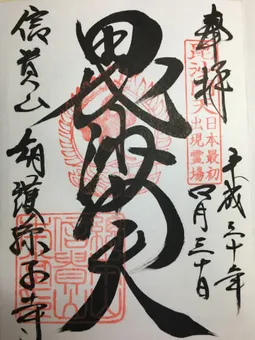 奉拝
平成三十年
四月三十日
毘沙門天
日本最初
出現霊場
毘沙門天
信貴山 朝護孫子寺